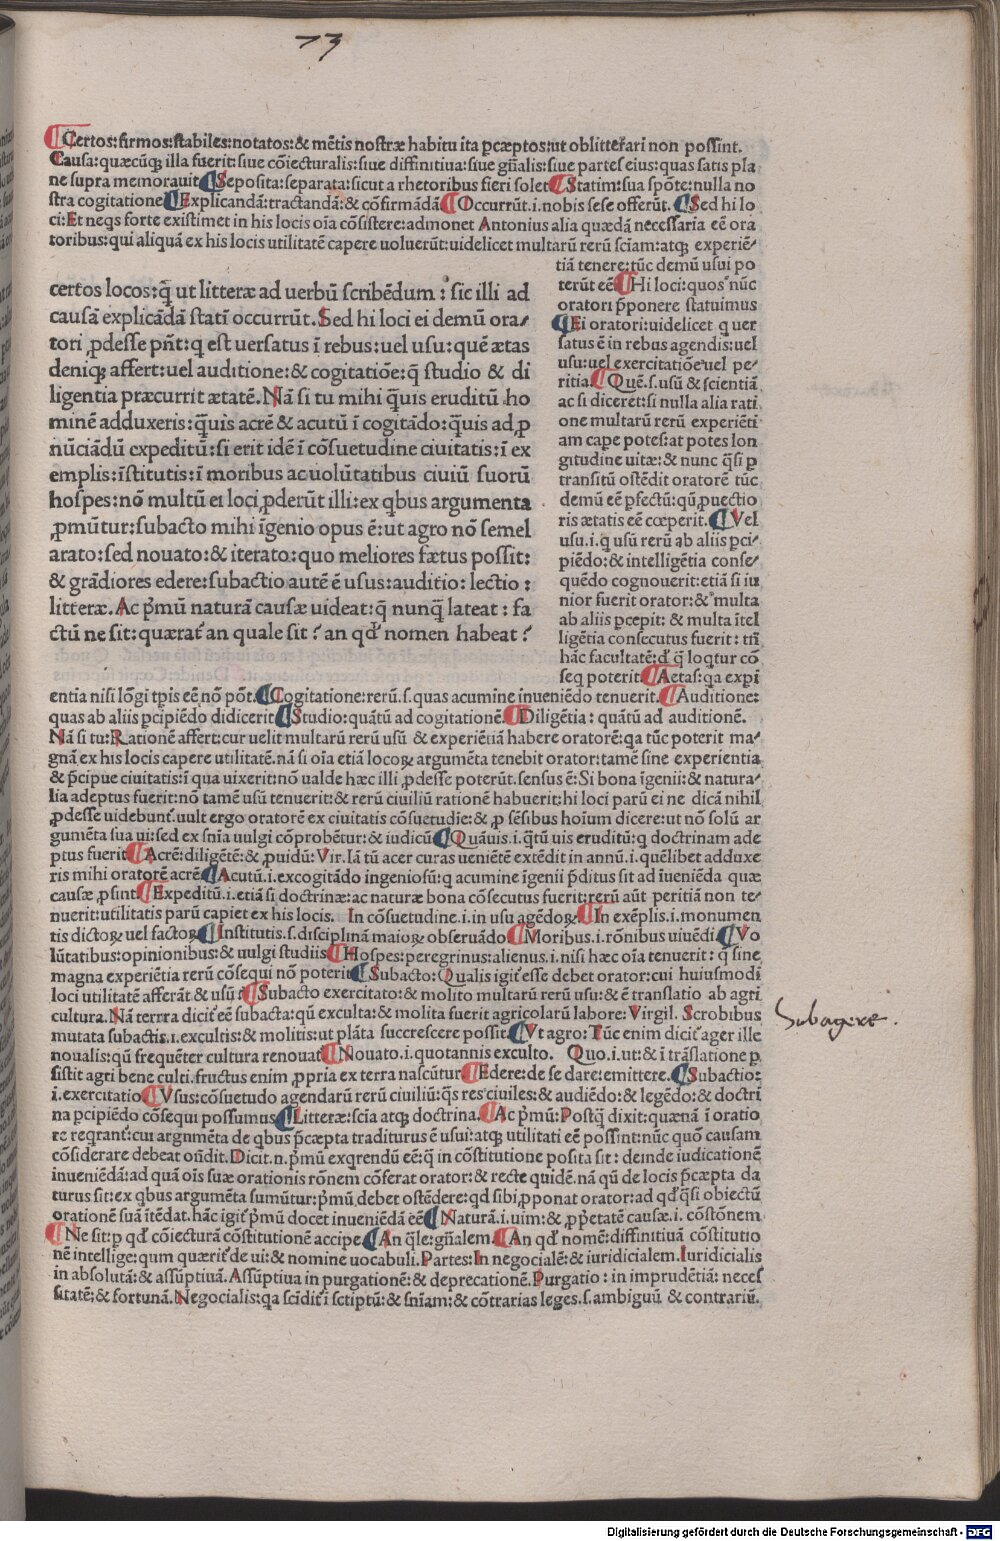 73
¶ Certos: firmos: stabiles: notatos: & mētis nostræ habitu ita ꝑcæptos: ut oblitterari non possint.
Causa: quæcūqꝫ illa fuerit: siue cōiecturalis: siue diffinitiua: siue gñalis: siue partes eius: quas satis pla
ne supra memorauit ¶ Seposita: separata: sicut a rhetoribus fieri solet ¶ Statim: sua spōte: nulla no
stra cogitatione ¶ Explicandā: tractandā: & cōfirmādā ¶ Occurrūt .i. nobis sese offerūt. ¶ Sed hi lo
ci: Et neqs forte existimet in his locis oīa cōsistere: admonet Antonius alia quædā necessaria eē ora
toribus: qui aliquā ex his locis utilitatē capere uoluerūt: uidelicet multarū rerū sciam: atqꝫ experiē-
tiā tenere: tūc demū usui po
terūt eē ¶ Hi loci: quos nūc
oratori ꝓponere statuimus
¶ Ei oratori: uidelicet q uer
satus ē in rebus agendis: uel
usu: uel exercitatiōe uel pe-
ritia. ¶ Quē .s. usū & scientiā
ac si diceret: si nulla alia rati
one multarū rerū experiēti
am cape potest: at potes lon
gitudine uitæ: & nunc q̄si ꝑ
transitū ostēdit oratorē tūc
demū eē ꝑfectū: qū ꝓuectio
ris ætatis eē cœperit. ¶ Vel
usu .i. q usū rerū ab aliis ꝑci-
piēdo: & intelligētia conse-
quēdo cognouerit: etiā si iu
nior fuerit orator: & multa
ab aliis ꝑcepit: & multa ītel
ligētia consecutus fuerit: tñ
hāc facultatē: d' q̄ loqtur cō
seq poterit ¶ Aetas: qa expi
certos locos: q̄ ut litteræ ad uerbū scribēdum: sic illi ad
causā explicādā stati occurrūt. Sed hi loci ei demū ora-
tori ꝓdesse pñt: q est uersatus ī rebus: uel usu: quē ætas
deniqꝫ affert: uel auditione: & cogitatiōe: q̄ studio & di
ligentia præcurrit ætatē. Nā si tu mihi q̄uis eruditū ho
minē adduxeris: q̄uis acrē & acutū ī cogitādo: q̄uis ad ꝓ
nūciādū expeditū: si erit idē ī cōsuetudine ciuitatis: ī ex
emplis: īstitutis: ī moribus ac uolūtatibus ciuiū suorū
hospes: nō multū ei loci ꝓderūt illi: ex qbus argumenta
ꝓmūtur: subacto mihi īgenio opus ē: ut agro nō semel
arato: sed nouato: & iterato: quo meliores fætus possit:
& grādiores edere: subactio autē ē usus: auditio: lectio:
litteræ. Ac pꝛmū naturā causæ uideat: q̄ nunq̄ lateat: fa
ctū ne sit: quærat' an quale sit? an qd' nomen habeat?
entia nisi lōgi tꝑis eē nō pōt. ¶ Cogitatione: rerū .s. quas acumine inueniēdo tenuerit. ¶ Auditione:
quas ab aliis ꝑcipiēdo didicerit ¶ Studio: quātū ad cogitationē. ¶ Diligētia: quātū ad auditionē.
Nā si tu: Rationē affert: cur uelit multarū rerū usū & experiētiā habere oratorē: qa tūc poterit ma-
gnā ex his locis capere utilitatē. nā si oīa etiā locoꝝ argumēta tenebit orator: tamē sine experientia
& p̄cipue ciuitatis: ī qua uixerit: nō ualde hæc illi ꝓdesse poterūt. sensus ē: Si bona īgenii: & natura-
lia adeptus fuerit: nō tamē usū tenuerit: & rerū ciuiliū rationē habuerit: hi loci parū ei ne dicā nihil
ꝓdesse uidebunt'. uult ergo oratorē ex ciuitatis cōsuetudie: & ꝓ sēsibus hoium dicere: ut nō solū ar
gumēta sua ui: sed ex sn̄ia uulgi cōprobētur: & iudicū ¶ Quāuis .i. q̄tū uis eruditū: q doctrinam ade
ptus fuerit ¶ Acrē: diligētē: & ꝓuidū: Vir. Iā tū acer curas ueniētē extēdit in annū .i. quēlibet adduxe
ris mihi oratorē acrē ¶ Acutū .i. excogitādo ingeniosū: q acumine īgenii p̄ditus sit ad īueniēda quæ
causæ ꝓsint ¶ Expeditū .i. etiā si doctrinæ: ac naturæ bona cōsecutus fuerit: rerū aūt peritiā non te-
nuerit: utilitatis parū capiet ex his locis. In cōsuetudine .i. in usu agēdoꝝ. ¶ In exēplis .i. monumen
tis dictoꝝ uel factoꝝ ¶ Institutis .s. disciplinā maioꝝ obseruādo ¶ Moribus .i. rōnibus uiuēdi ¶ Vo
lūtatibus: opinionibus: & uulgi studiis ¶ Hospes: peregrinus: alienus .i. nisi hæc oīa tenuerit: q̄ sine
magna experiētia rerū cōsequi nō poterit ¶ Subacto: Qualis igit' esse debet orator: cui huiusmodi
loci utilitatē afferāt & usū? ¶ Subacto exercitato: & molito multarū rerū usu: & ē translatio ab agri
cultura. Nā terrra dicit' eē subacta: qū exculta: & molita fuerit agricolarū labore: Virgil. Scrobibus
mutata subactis .i. excultis: & molitis: ut plāta succrescere possit ¶ Vt agro: Tūc enim dicit' ager ille
noualis: qū frequēter cultura renouat' ¶ Nouato .i. quotannis exculto. Quo .i. ut: & ī trāslatione ꝑ
sistit agri bene culti. fructus enim ꝓpria ex terra nascūtur. ¶ Edere: de se dare: emittere. ¶ Subactio:
.i. exercitatio ¶ Vsus: cōsuetudo agendarū rerū ciuiliū: q̄s res ciuiles: & audiēdo: & legēdo: & doctri
na ꝑcipiēdo cōsequi possumus ¶ Litteræ: scīa atqꝫ doctrina. ¶ Ac pꝛmū: Postq̄ dixit: quænā ī oratio
re reqrant': cui argumēta de qbus p̄cæpta traditurus ē usui: atqꝫ utilitati eē possint: nūc quō causam
cōsiderare debeat oñdit. Dicit .n. pꝛmū exqrendū eē: q̄ in cōstitutione posita sit: deinde iudicationē
inueniēdā: ad quā oīs suæ orationis rōnem cōferat orator: & recte quidē. nā qū de locis p̄cæpta da
turus sit: ex qbus argumēta sumūtur: pꝛmū debet ostēdere: qd sibi ꝓponat orator: ad qd' q̄si obiectū
orationē suā ītēdat. hāc igit' pꝛmū docet inueniēdā eē ¶ Naturā .i. uim: & ꝓp̄etatē causæ .i. cōstōnem
¶ Ne sit: ꝑ qd' cōiecturā cōstitutionē accipe ¶ An q̄le: gñalem. ¶ An qd' nomē: diffinitiuā cōstitutio
nē intellige: qum quærit' de ui: & nomine uocabuli. Partes: In negocialē: & iuridicialem. Iuridicialis
in absolutā: & assūptiuā. Assūptiua in purgationē: & deprecationē. Purgatio: in imprudētiā: neces
sitatē: & fortunā. Negocialis: qa scīdit' ī sctiptū: & sn̄iam: & cōtrarias leges .s. ambiguū & contrariū.
Subagere.
Digitalisierung gefördert durch die Deutsche Forschungsgemeinschaft - DFG